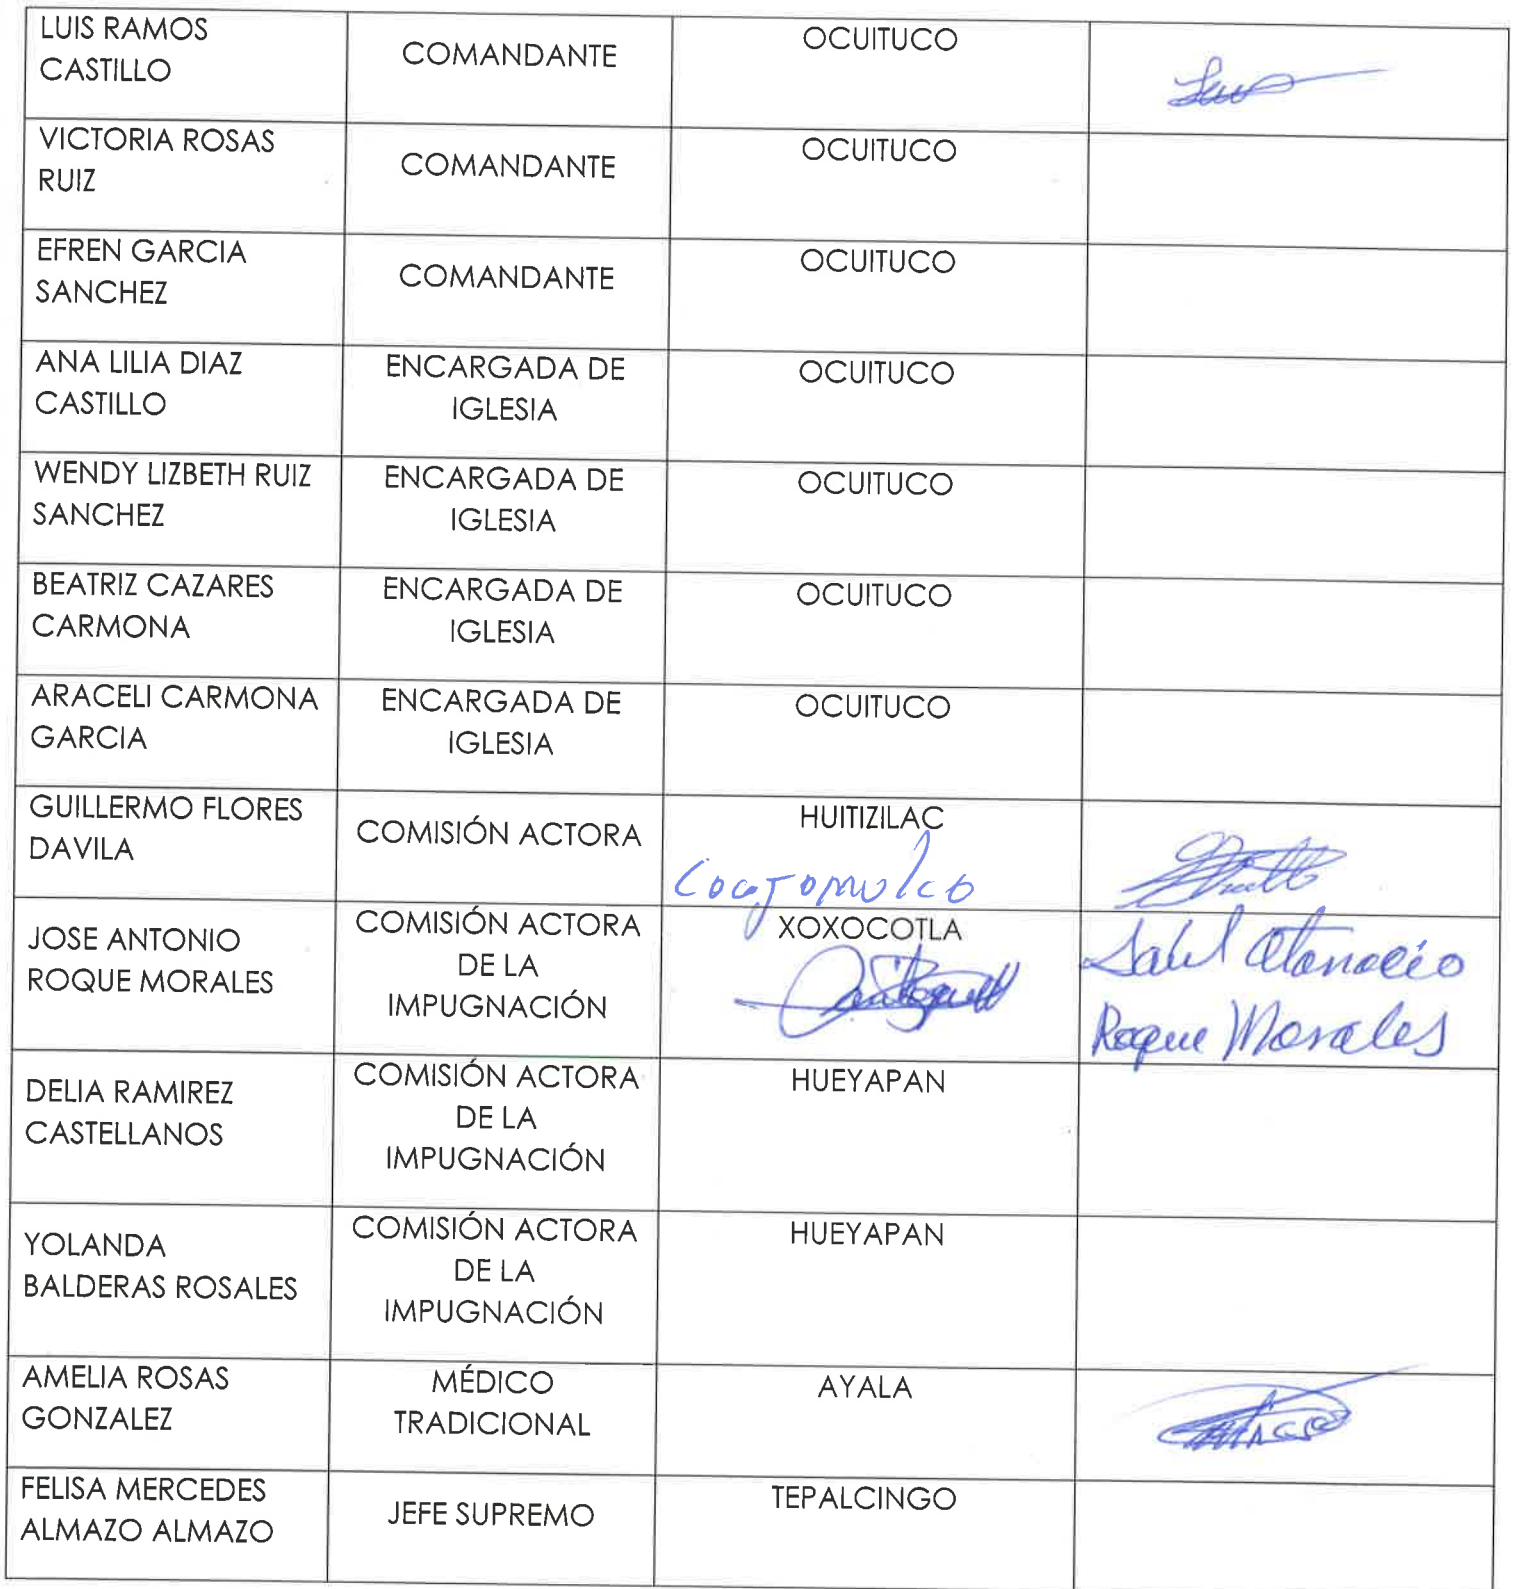 LUIS RAMOS
CASTILLO
COMANDANTE
OCUITUCO
VICTORIA ROSAS
RUIZ
COMANDANTE
OCUITUCO
EFREN GARCIA
SANCHEZ
COMANDANTE
OCUITUCO
ANA LILIA DIAZ
CASTILLO
ENCARGADA DE
IGLESIA
OCUITUCO
WENDY LIZBETH RUIZ
SANCHEZ
ENCARGADA DE
IGLESIA
OCUITUCO
BEATRIZ CAZARES
CARMONA
ENCARGADA DE
IGLESIA
OCUITUCO
ARACELI CARMONA
GARCIA
ENCARGADA DE
IGLESIA
OCUITUCO
GUILLERMO FLORES
DAVILA
COMISIÓN ACTORA
HUITIZILAC
JOSE ANTONIO
ROQUE MORALES
COMISIÓN ACTORA
DE LA
IMPUGNACIÓN
XOXOCOTLA
Roque Morales
DELIA RAMIREZ
CASTELLANOS
COMISIÓN ACTORA
DE LA
IMPUGNACIÓN
HUEYAPAN
YOLANDA
BALDERAS ROSALES
COMISIÓN ACTORA
DE LA
IMPUGNACIÓN
HUEYAPAN
AMELIA ROSAS
GONZALEZ
MÉDICO
TRADICIONAL
AYALA
FELISA MERCEDES
ALMAZO ALMAZO
JEFE SUPREMO
TEPALCINGO